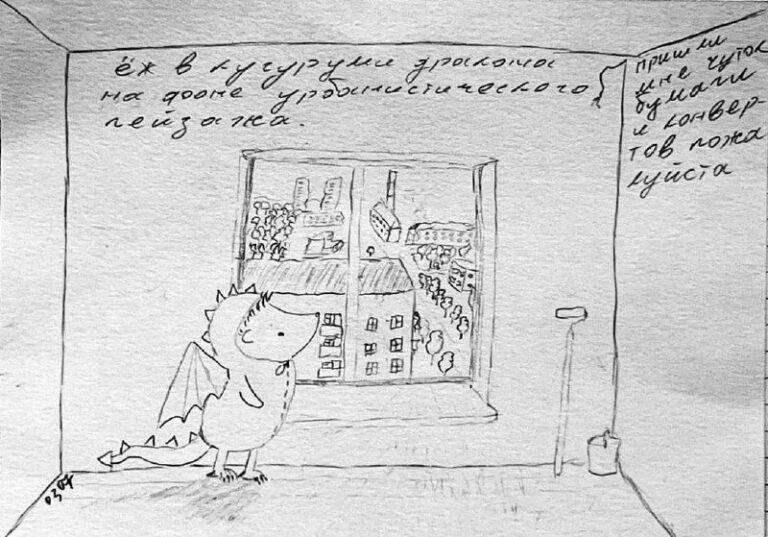 ёж в кугуруми дракона
на фоне урбанистического
пейзажа.
пришли
мне чуток
бумаги
и конвер-
тов пожа
луйста